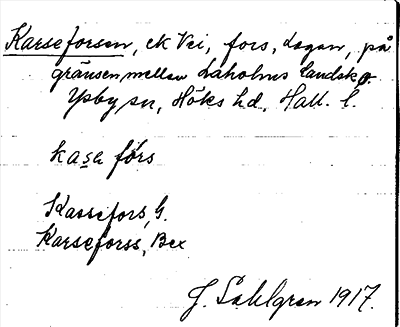 Karseforsen, ek Vei, fors, Lagan, på
gränsen mellan Laholms landsk o.
Ysby sn, Höks hd, Hall. l.
kasa fórs
Kassefors, G.
Karseforss, Bex
J. Sahlgren 1917.